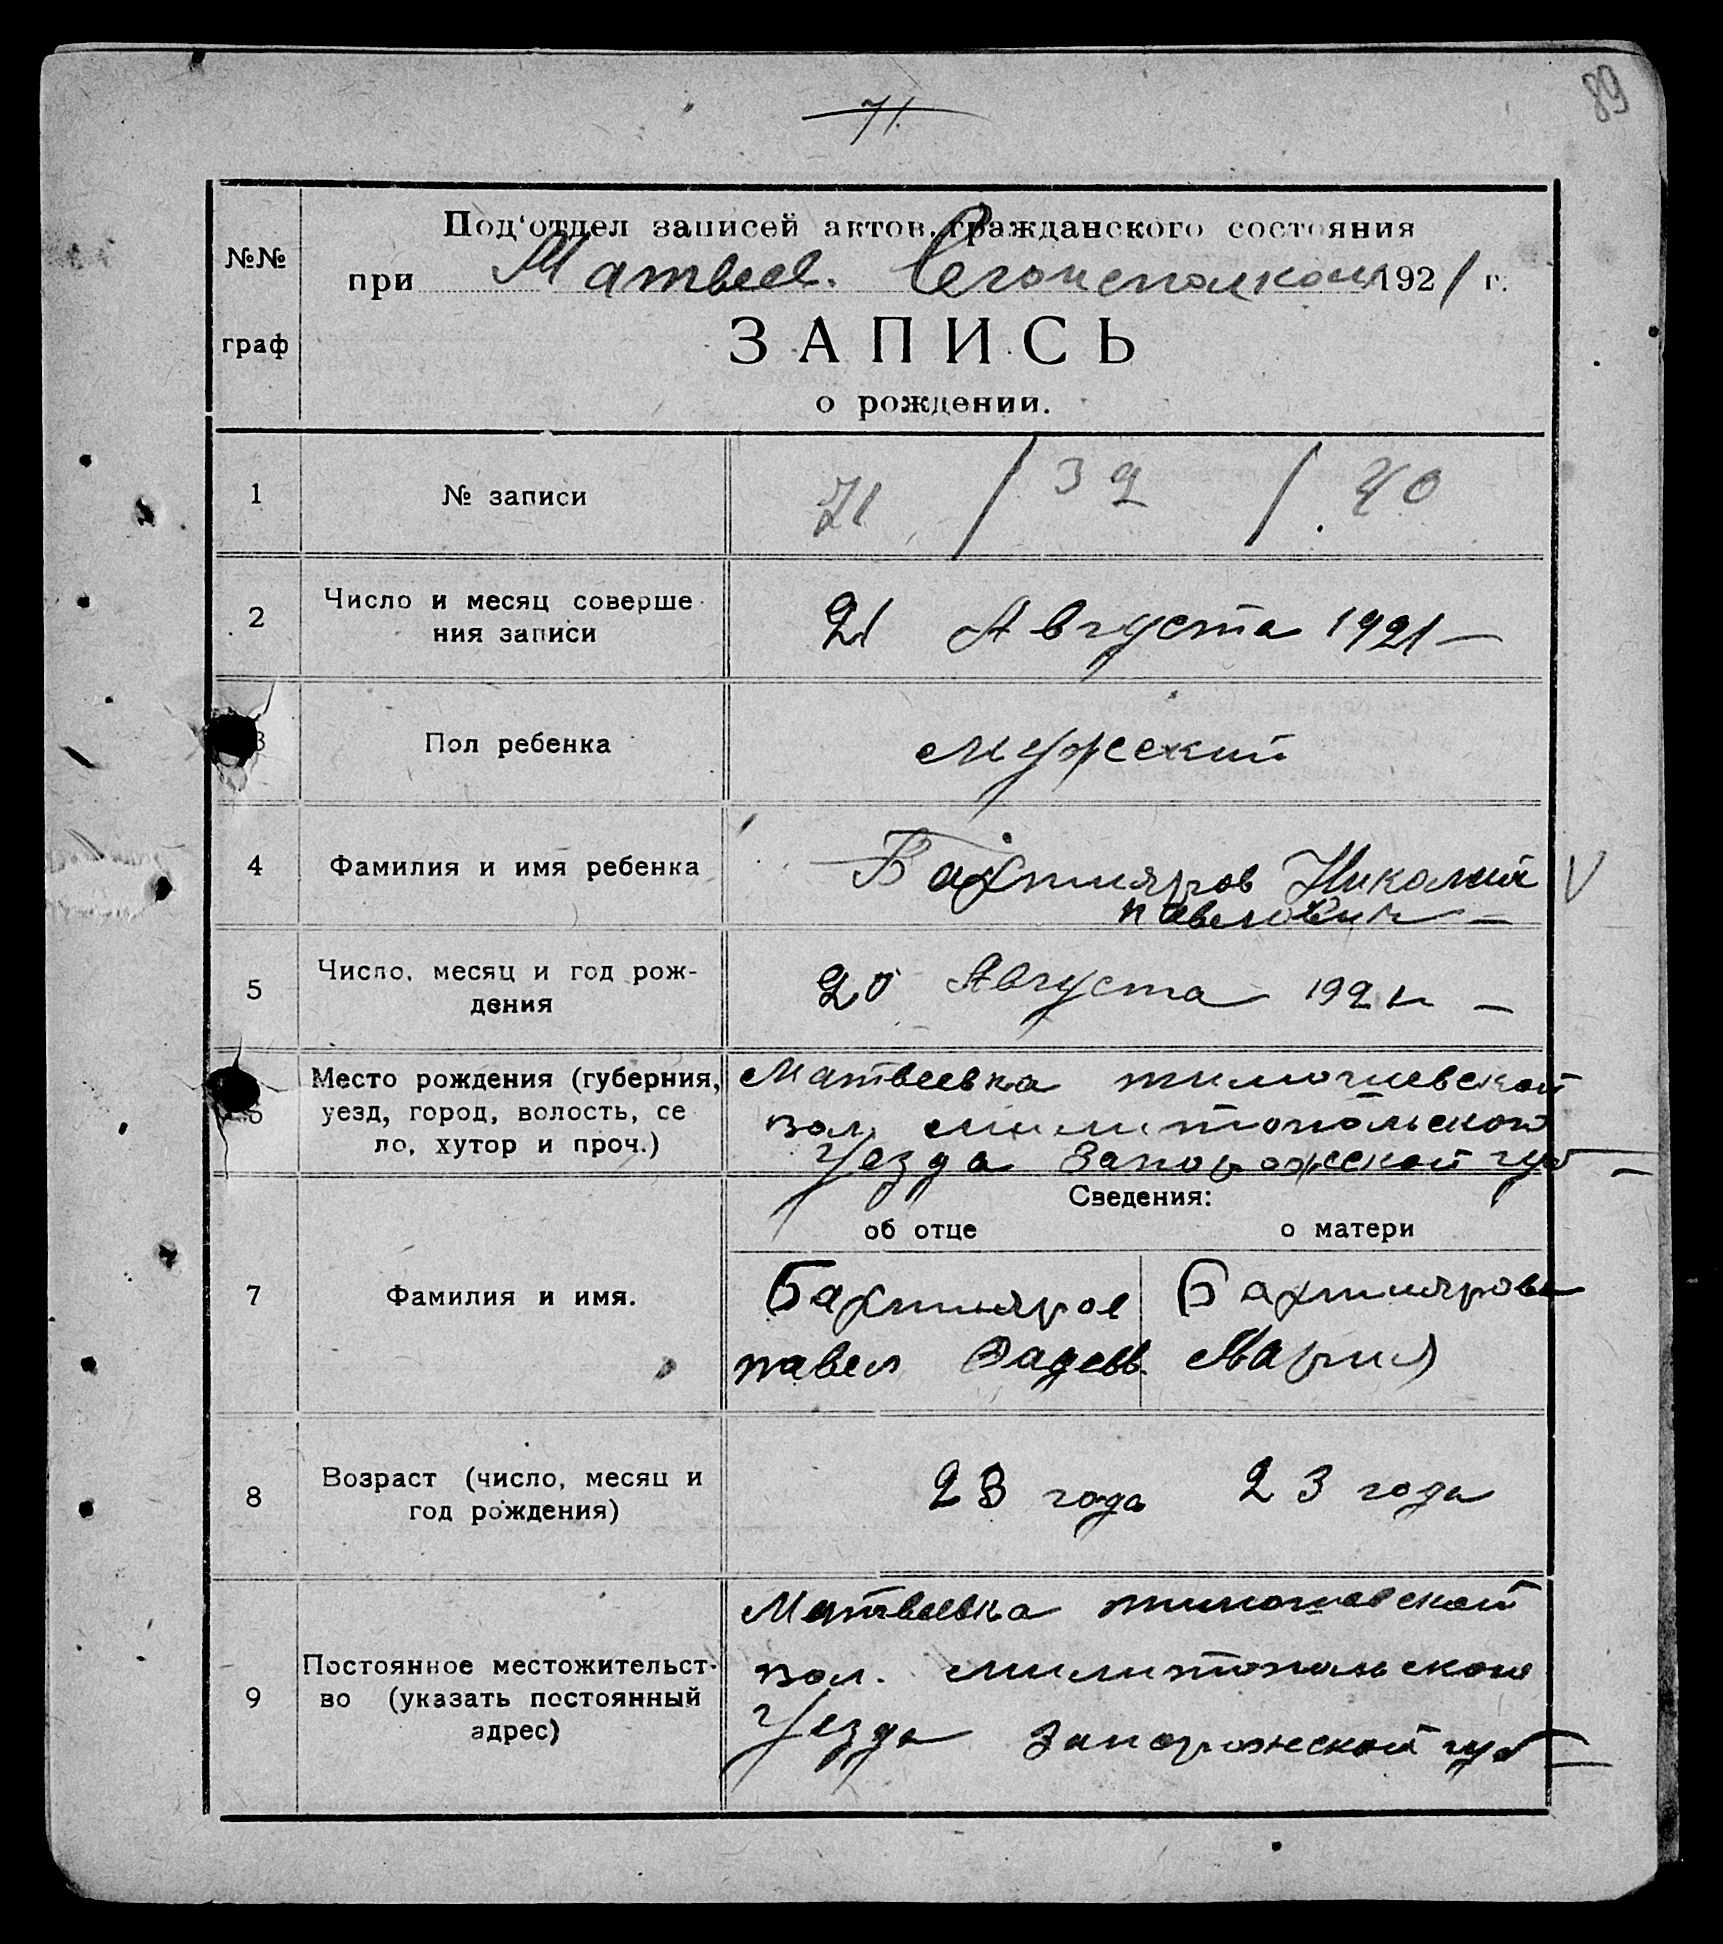 89
71.
№№ граф
Под'отдел записей актов гражданского состояния
при Матвеев. 1921 г.
ЗАПИСЬ
о рождении.
1 № записи 71 / 39 / 40
2 Число и месяц соверше
ния записи 21 Августа 1921 —
3 Пол ребенка мужский
4 Фамилия и имя ребенка Бахтияров Николай V
павлович —
5 Число, месяц и год рож-
дения 20 Августа 1921 —
6 Место рождения (губерния,
уезд, город, волость, се
ло, хутор и проч.)
Матвеевка тимошевской
вол. милитопольскою
Уезда Запорожской губ —
Сведения:
об отце о матери
7 Фамилия и имя.
Бахтияров Бахтиярова
павел Мария
8 Возраст (число, месяц и
год рождения) 23 года 23 года
9 Постоянное местожительст-
во (указать постоянный
адрес)
Матвеевка тимошевской
вол. милитопольскою
Уезда Запорожской губ —